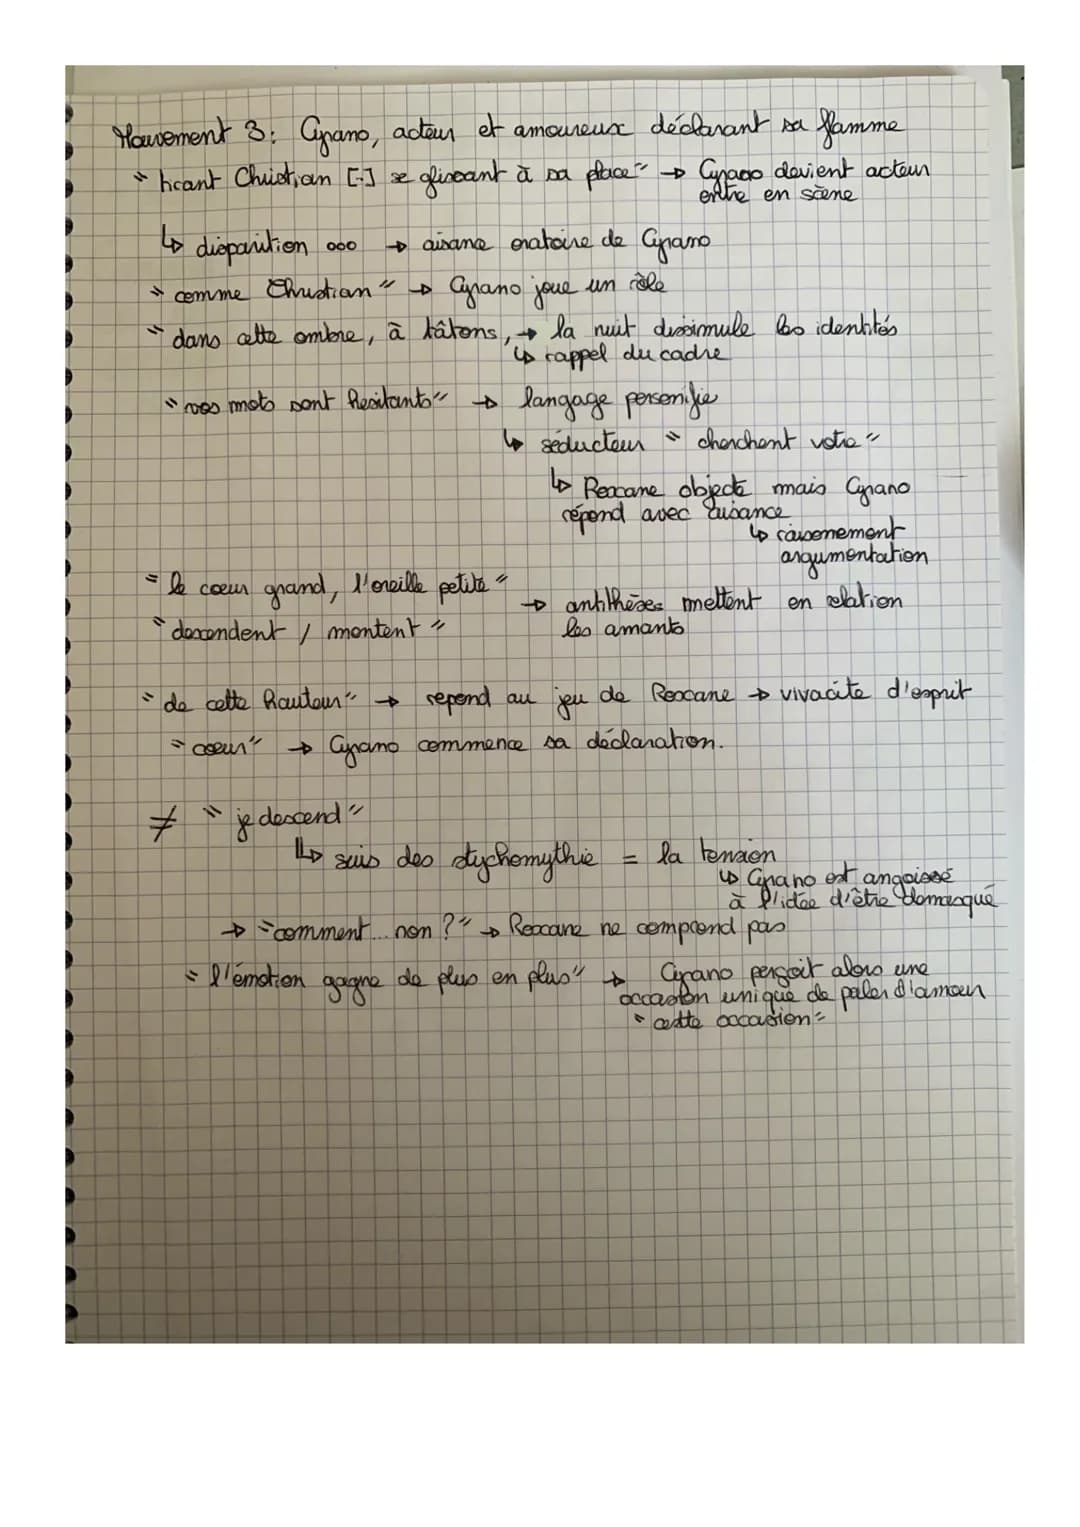 Mouvement 3: Cyrano, acteur et amoureux déclarant sa flamme
" tirant Christian [..] se glissant à sa place" → Cyrano devient acteur
entre en scène
↳ disparition ooo → aisance oratoire de Cyrano
" comme Christian " → Cyrano joue un rôle
" dans cette ombre, à tâtons, → la nuit dissimule les identités
↳ rappel du cadre
" vos mots sont hésitants" → langage personifie
↳ séducteur " cherchent votre "
↳ Roxane objecte mais Cyrano
répond avec aisance
↳ raisonement
argumentation
" le coeur grand, l'oreille petite "
→ antithèses mettent en relation
" descendent / montent "
les amants
" de cette hauteur" → repond au jeu de Roxane → vivacite d'esprit
" coeur" → Cyrano commence sa déclaration.
≠ " je descend "
↳ suis des stychomythie = la tension
↳ Cyrano est angoissé
à l'idée d'être démasqué
→ "comment... non ?" → Roxane ne comprend pas
" l'émotion gagne de plus en plus" → Cyrano perçoit alors une
occasion unique de paler d'amour
" cette occasion"